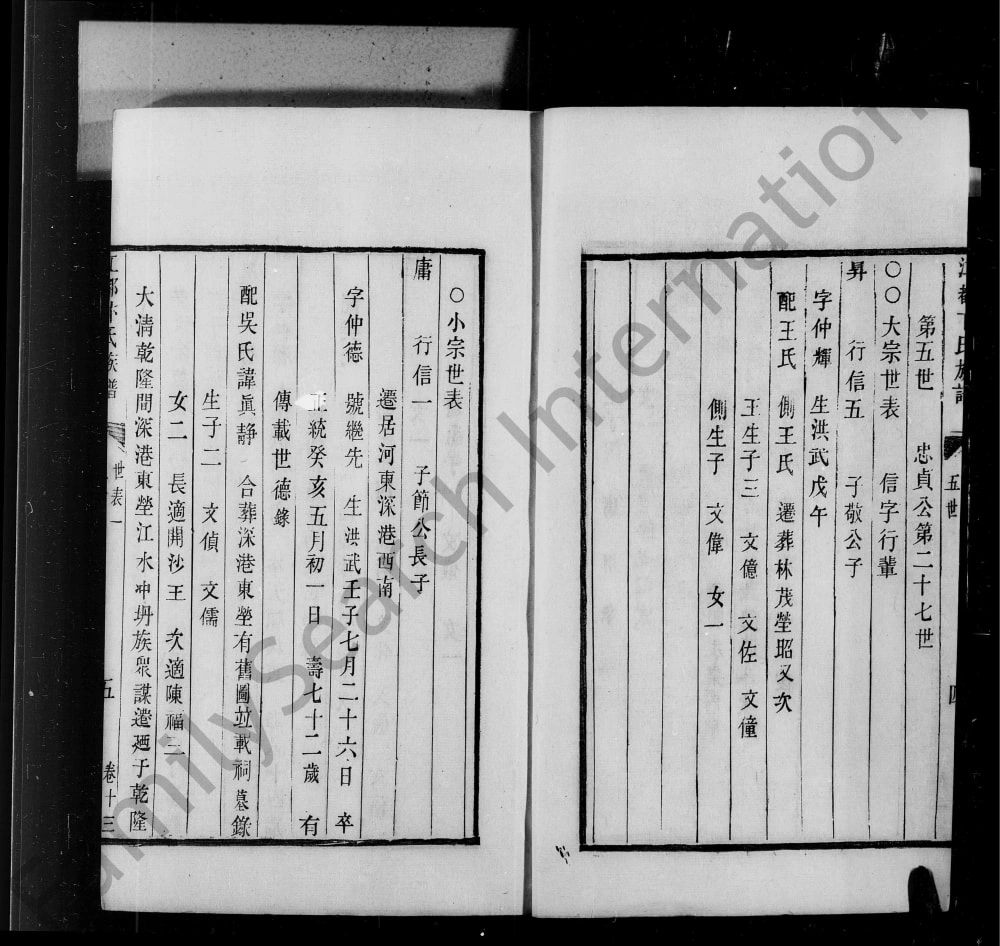 五世
第五世 忠貞公第二十七世
○○大宗世表 信字行輩
昇 行信五 子敬公子
字仲輝 生洪武戊午
配王氏 側王氏 遷葬林茂塋昭又次
王生子三 文億 文佐 文僮
側生子 文偉 女一
○小宗世表
庸 行信一 子節公長子
遷居河東深港西南
字仲德 號繼先 生洪武壬子七月二十六日 卒
正統癸亥五月初一日 壽七十二歲 有
傳載世德錄
配吳氏諱眞静 合葬深港東塋有舊圖竝載祠墓錄
生子二 文偵 文儒
女二 長適開沙王 次適陳福三
大清乾隆間深港東塋江水冲坍族衆謀遷廻于乾隆
氏族譜 世表一 五 卷十三
FamilySearch International